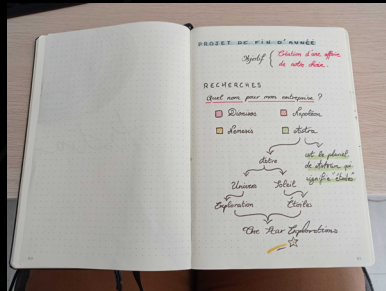 PROJET DE FIN D'ANNÉE
Objectif { Création d'une affaire
de votre choix.
RECHERCHES
Quel nom pour mon entreprise ?
Dionusos
Napoléon
Némésis
Astra
Astra
est le pluriel
de Astrum qui
signifie "étoiles"
Univers
Soleil
Exploration
Étoiles
The Star Explorations